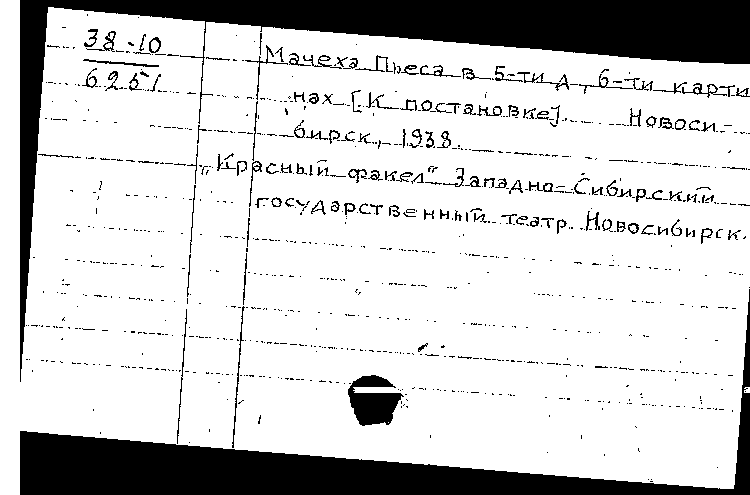 38-10
6251
Мачеха Пьеса в 5-ти д, 6-ти карти
нах [К постановке]. Новоси-
бирск, 1938.
„Красный факел" Западно-Сибирский
государственный театр. Новосибирск.